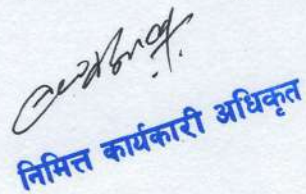 निमित्त कार्यकारी अधिकृत